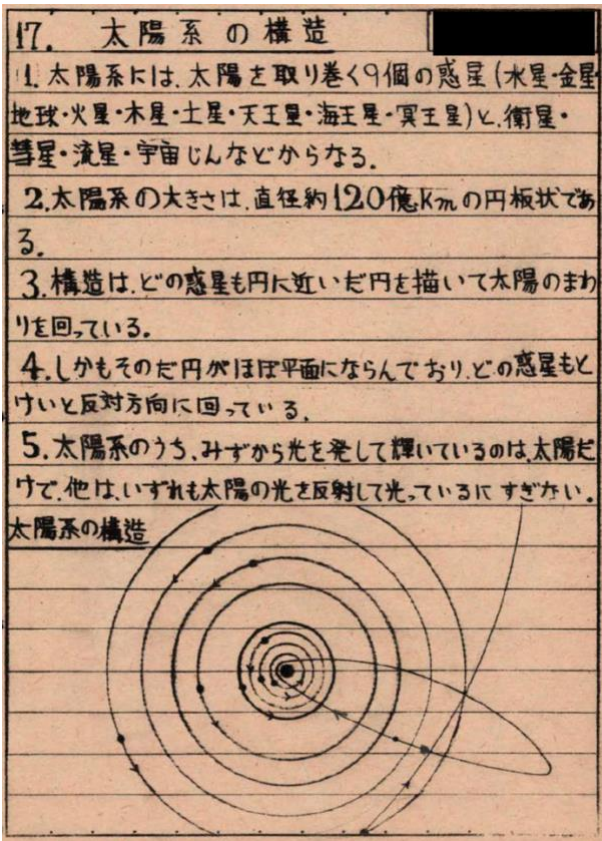 17. 太陽系の構造
1. 太陽系には、太陽を取り巻く9個の惑星(水星・金星・
地球・火星・木星・土星・天王星・海王星・冥王星)と、衛星・
彗星・流星・宇宙じんなどからなる.
2. 太陽系の大きさは、直径約120億kmの円板状であ
る.
3. 構造は、どの惑星も円に近いだ円を描いて太陽のまわ
りを回っている.
4. しかもそのだ円がほぼ平面にならんでおり、どの惑星もと
けいと反対方向に回っている.
5. 太陽系のうち、みずから光を発して輝いているのは、太陽だ
けで、他は、いずれも太陽の光を反射して光っているにすぎない.
太陽系の構造